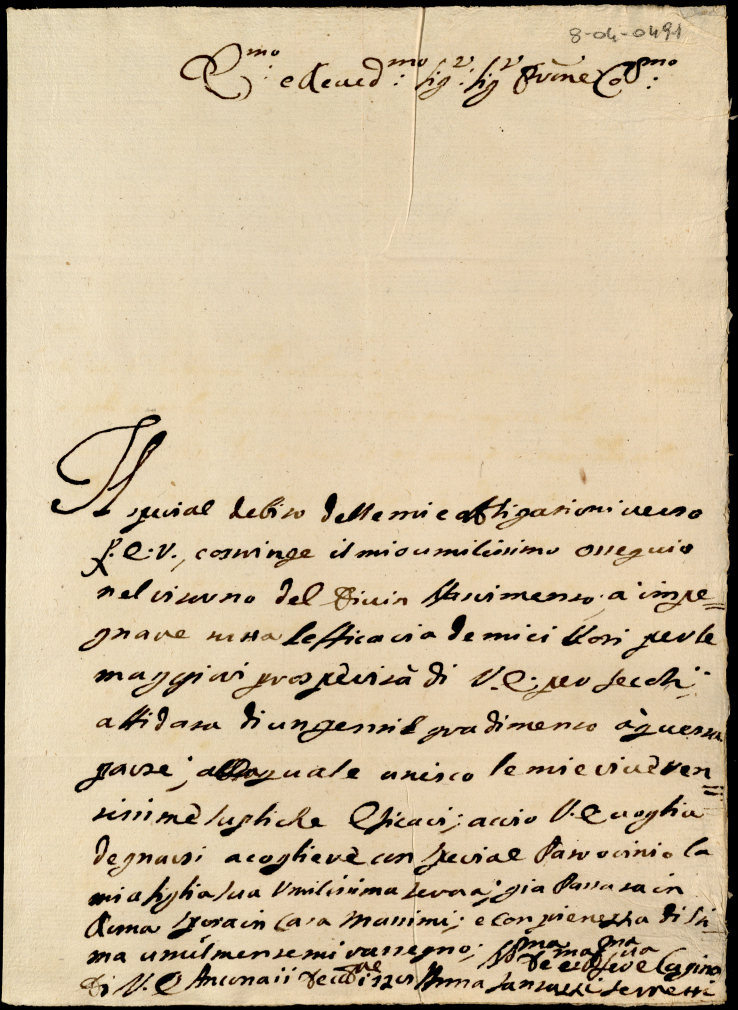 8-04-0491
E.mo e Reued.mo Sig.r Sig.r Prone Co.mo
Il special debito delle mie obligationi verso
l'E.V., costringe il mio umilissimo ossequio
nel ritorno del Diuin Nascimento; a' impe=
gnare tutta l'efficacia de miei Uoti per le
maggiori prosperità di V.E. per secoli;
affidata di un gentil gradimento à questa
parte; alla quale unisco le mie riuèren=
tissimè supliche Eficaci; accio V.E uoglia
degnarsi acoglierè con special Patrocinio la
mia figlia sua Umilissima serva; già Passata in
Roma sposa in Casa Massimi; e con pienezza di sti
ma umilmente mi rassegno;
Di V.E Ancona ii Decbre 1721 Anna